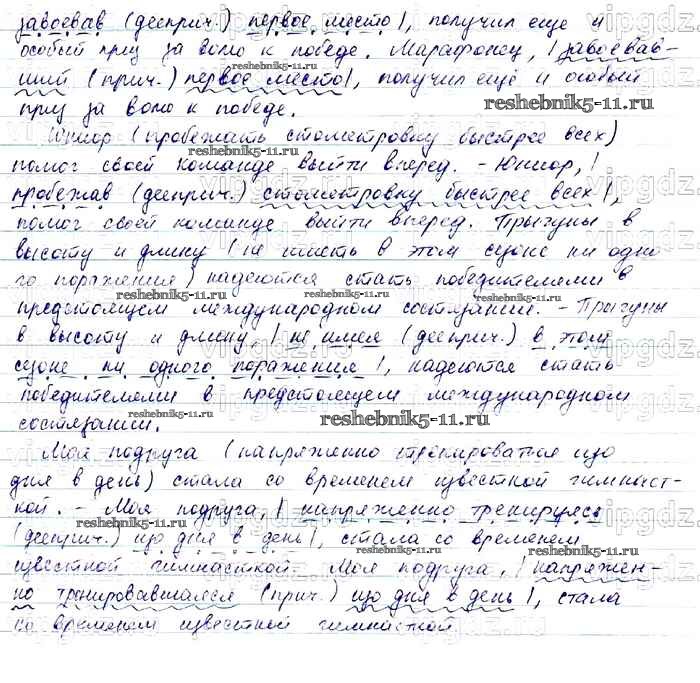 завоевав (дееприч.) первое место|, получил ещё и
особый приз за волю к победе. Марафонец, |завоевав-
ший (прич.) первое место|, получил ещё и особый
приз за волю к победе.
Юниор (пробежать стометровку быстрее всех)
помог своей команде выйти вперед. - Юниор, |
пробежав (дееприч.) стометровку быстрее всех|,
помог своей команде выйти вперед. Прыгуны в
высоту и длину (не иметь в этом сезоне ни одно
го поражения) надеются стать победителями в
предстоящем международном состязании. - Прыгуны
в высоту и длину, | не имея (дееприч.) в этом
сезоне ни одного поражения |, надеются стать
победителями в предстоящем международном
состязании.
Моя подруга (напряженно тренироваться изо
дня в день) стала со временем известной гимнаст-
кой. - Моя подруга, | напряженно тренируясь
(дееприч.) изо дня в день|, стала со временем
известной гимнасткой. Моя подруга, |напряжен-
но тренировавшаяся (прич.) изо дня в день |, стала
со временем известной гимнасткой.
reshebnik5-11.ru
reshebnik5-11.ru
reshebnik5-11.ru
reshebnik5-11.ru
reshebnik5-11.ru
reshebnik5-11.ru
reshebnik5-11.ru
reshebnik5-11.ru
reshebnik5-11.ru
reshebnik5-11.ru
reshebnik5-11.ru
reshebnik5-11.ru